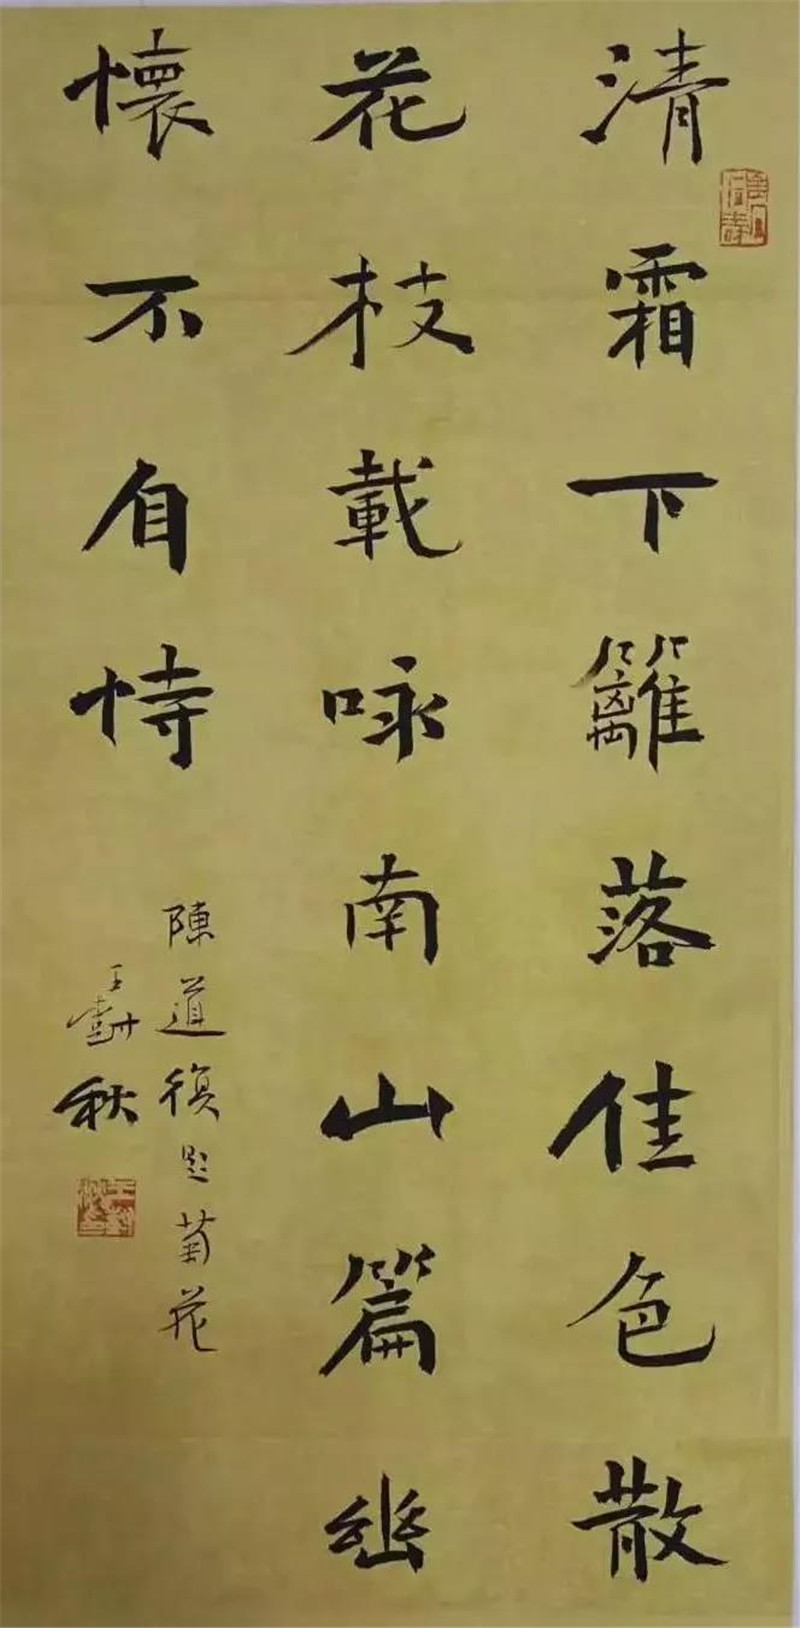 清霜下籬落佳色散
花枝載咏南山篇幽
懷不自恃
陳道復題菊花
王
秋